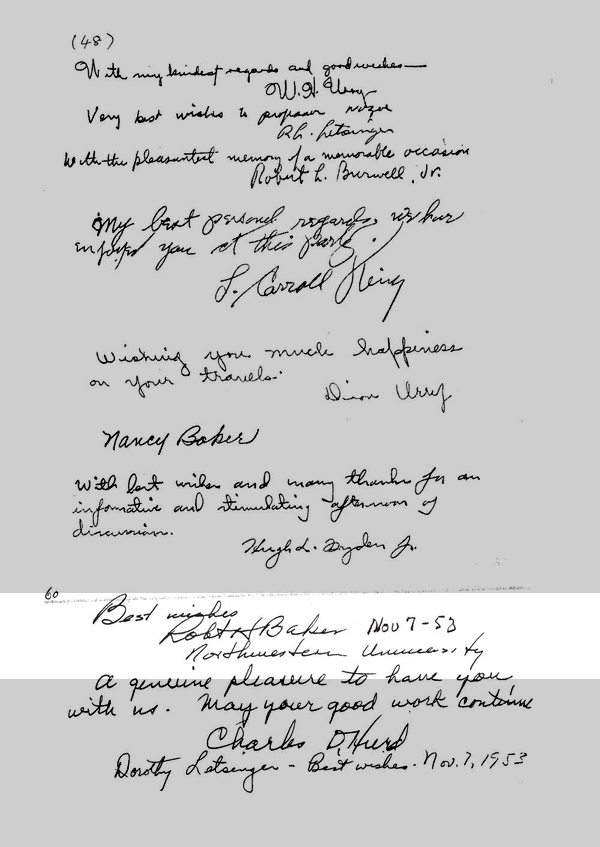 (48)
With my kindest regards and good wishes—
W. H. Urry
Very best wishes to professor Nozoe
R. L. Letsinger
With the pleasantest memory of a memorable occasion
Robert L. Burwell, Jr.
My best personal regards, we have
enjoyed you at this party.
L. Carroll King
Wishing you much happiness
on your travels.
Urry
Nancy Baker
With best wishes and many thanks for an
informative and stimulating afternoon of
discussion.
Hugh L. Dryden Jr.
60
Best wishes
Robt H Baker Nov 7-53
Northwestern University
A genuine pleasure to have you
with us. May your good work continue
Charles D. Hurd
Dorothy Letsinger - Best wishes. Nov. 7, 1953